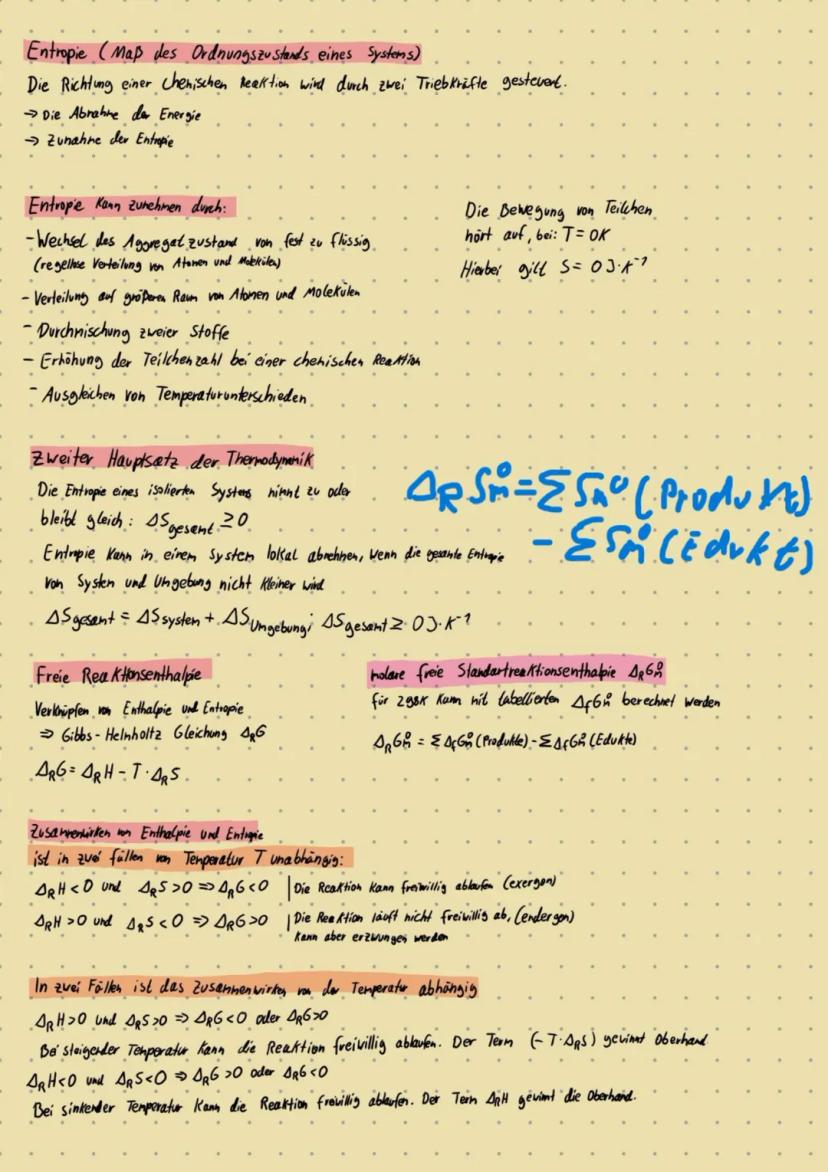 Entropie (Maß des Ordnungszustands eines Systems)
Die Richtung einer chemischen Reaktion wird durch zwei Triebkräfte gesteuert.
→ Die Abnahme der Energie
→ Zunahme der Entropie
Entropie kann zunehmen durch:
- Wechsel des Aggregatzustand von fest zu flüssig
(regellose Verteilung von Atomen und Molekülen)
- Verteilung auf größeren Raum von Atomen und Molekülen
- Durchmischung zweier Stoffe
- Erhöhung der Teilchenzahl bei einer chemischen Reaktion
- Ausgleichen von Temperaturunterschieden
Die Bewegung von Teilchen
hört auf, bei: T = 0K
Hierbei gilt S = 0 J·K⁻¹
Zweiter Hauptsatz der Thermodynamik
Die Entropie eines isolierten Systems nimmt zu oder
bleibt gleich: ΔSgesamt ≥ 0
Entropie kann in einem System lokal abnehmen, wenn die gesamte Entropie
von System und Umgebung nicht kleiner wird
ΔSgesamt = ΔSsystem + ΔSUmgebung; ΔSgesamt ≥ 0 J·K⁻¹
ΔRSm⁰ = ΣSm⁰ (Produkt)
- ΣSm⁰ (Edukt)
Freie Reaktionsenthalpie
Verknüpfen von Enthalpie und Entropie
⇒ Gibbs-Helmholtz Gleichung ΔRG
ΔRG = ΔRH - T·ΔRS
molare freie Standartreaktionsenthalpie ΔRGm⁰
für 298K kann mit tabellierten ΔfGm⁰ berechnet werden
ΔRGm⁰ = ΣΔfGm⁰ (Produkte) - ΣΔfGm⁰ (Edukte)
Zusammenwirken von Enthalpie und Entropie
ist in zwei fällen von Temperatur T unabhängig:
ΔRH < 0 und ΔRS > 0 ⇒ ΔRG < 0 | Die Reaktion kann freiwillig ablaufen (exergon)
ΔRH > 0 und ΔRS < 0 ⇒ ΔRG > 0 | Die Reaktion läuft nicht freiwillig ab, (endergon)
kann aber erzwungen werden
In zwei Fällen ist das Zusammenwirken von der Temperatur abhängig
ΔRH > 0 und ΔRS > 0 ⇒ ΔRG < 0 oder ΔRG > 0
Bei steigender Temperatur kann die Reaktion freiwillig ablaufen. Der Term (-T·ΔRS) gewinnt Oberhand.
ΔRH < 0 und ΔRS < 0 ⇒ ΔRG > 0 oder ΔRG < 0
Bei sinkender Temperatur kann die Reaktion freiwillig ablaufen. Der Term ΔRH gewinnt die Oberhand.